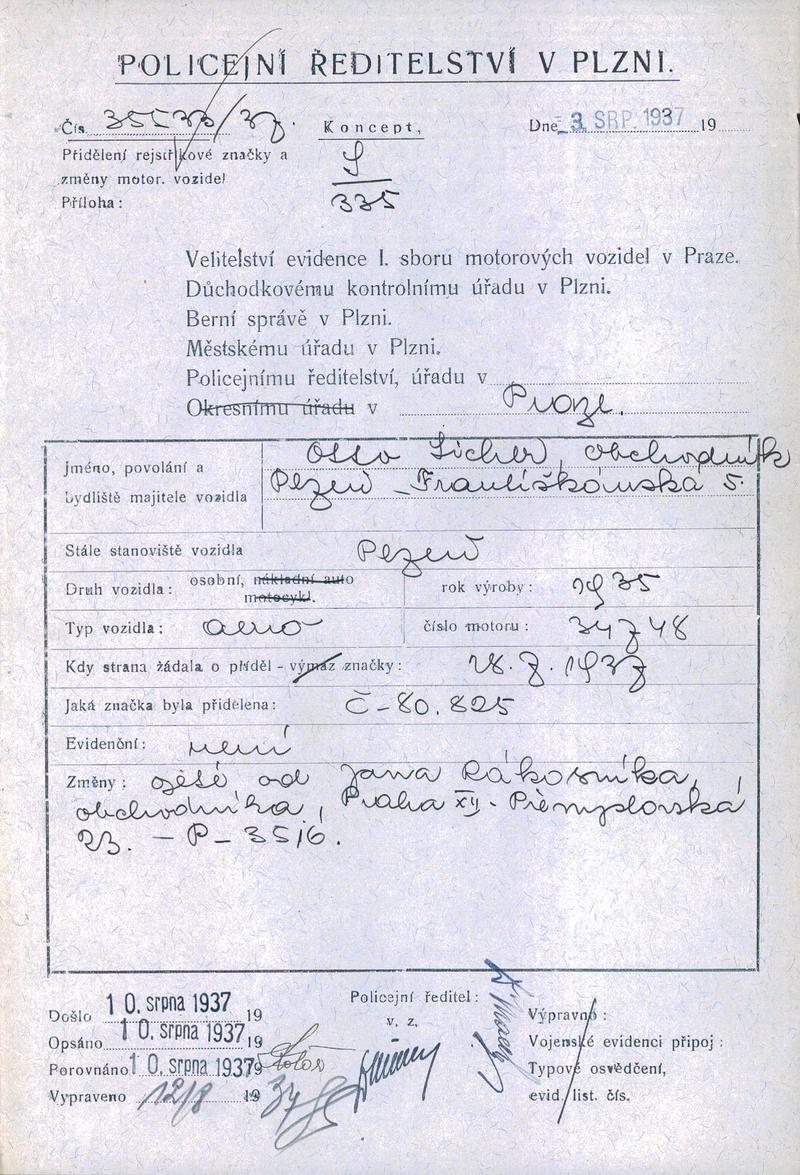 POLICEJNÍ ŘEDITELSTVÍ V PLZNI.
Čís. 35533/37. Koncept, Dne 3. SRP. 1937 19
Přidělení rejstříkové značky a
změny motor. vozidel
Příloha:
335
Velitelství evidence I. sboru motorových vozidel v Praze.
Důchodkovému kontrolnímu úřadu v Plzni.
Berní správě v Plzni.
Městskému úřadu v Plzni.
Policejnímu ředitelství, úřadu v
Okresnímu úřadu v Praze.
Jméno, povolání a Otto Sicher, obchodník
bydliště majitele vozidla Plzeň - Františkánská 5.
Stále stanoviště vozidla Plzeň
Druh vozidla: osobní, nákladní auto
motocykl. rok výroby: 1935
Typ vozidla: aero číslo motoru: 34748
Kdy strana žádala o příděl - výmaz značky: 28. 7. 1937
Jaká značka byla přidělena: Č-80.825
Evidenční: není
Změny: od Jana Rákosníka,
obchodníka, Praha XII - Přemyslovská
23. - P- 3516.
Došlo 10. srpna 1937 19
Opsáno 10. srpna 1937 19
Porovnáno 10. srpna 1937 19
Vypraveno 12/8 19 37
Policejní ředitel:
v. z.
Výpravně:
Vojenské evidenci připoj:
Typové osvědčení,
evid. list. čís.